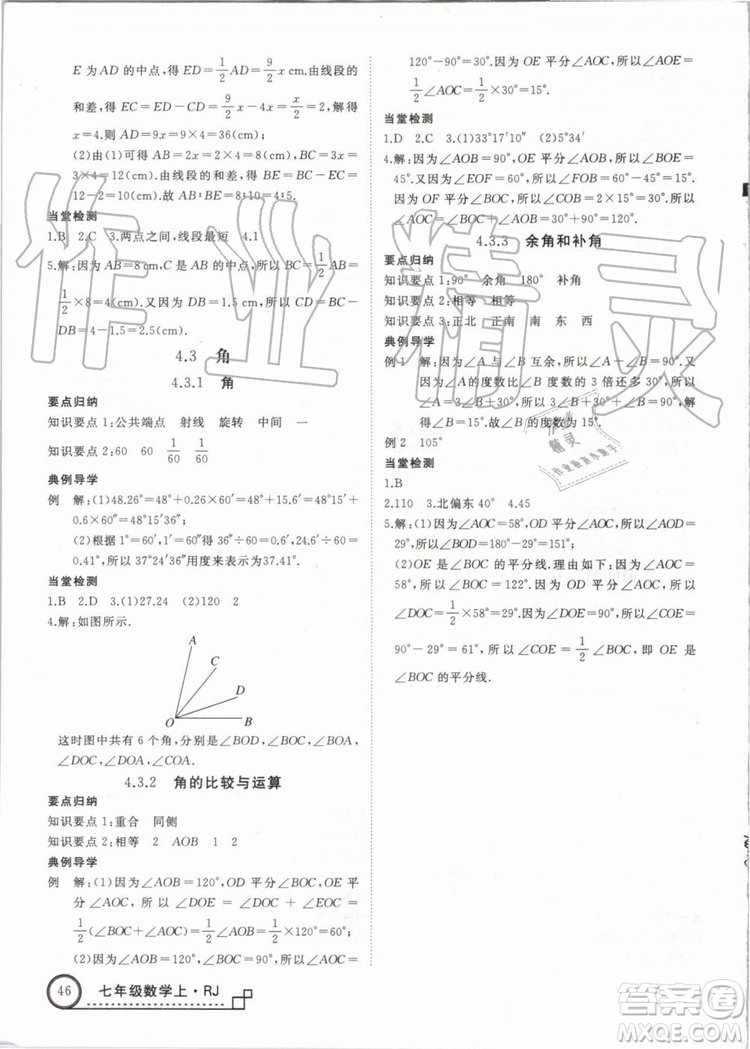 E 为 AD 的中点,得 ED=1/2AD=9/2x cm.由线段的
和差,得 EC=ED-CD=9/2x-4x=x/2=2,解得
x=4.则 AD=9x=9×4=36(cm);
(2)由(1)可得 AB=2x=2×4=8(cm),BC=3x=
3×4=12(cm).由线段的和差,得 BE=BC-CE=
12-2=10(cm).故 AB:BE=8:10=4:5.
当堂检测
1.B 2.C 3.两点之间,线段最短 4.1
5.解:因为 AB=8 cm,C 是 AB 的中点,所以 BC=
1/2×8=4(cm).因为 DB=1.5 cm,所以 CD=BC-
DB=4-1.5=2.5(cm).
4.3 角
4.3.1 角
要点归纳
知识要点 1:公共端点 射线 旋转 中间 一
知识要点 2:60 60 1/60 1/60
典例导学
例 解:(1)48.26°=48°+0.26×60′=48°+15′+
0.6×60″=48°15′36″;
(2)根据 1°=60′,1′=60″得 36″=0.6′,24.6′=
0.41°,所以 37°24′36″用度来表示为37.41°.
当堂检测
1.B 2.D 3.(1)27.24 (2)120 2
4.解:如图所示.
A
C
D
O B
这时图中共有 6 个角,分别是∠BOD,∠BOC,∠BOA,
∠DOC,∠DOA,∠COA.
4.3.2 角的比较与运算
要点归纳
知识要点 1:重合 同侧
知识要点 2:相等 2 AOB 1 2
典例导学
例 解:(1)因为∠AOB=120°,OD 平分∠BOC,OE 平
分∠AOC,所以∠DOE=∠DOC+∠EOC=
1/2(∠BOC+∠AOC)=1/2∠AOB=1/2×120°=60°;
(2)因为∠AOB=120°,∠BOC=90°,所以∠AOC=
46 七年级数学上·RJ
120°-90°=30°.因为 OE 平分∠AOC,所以∠AOE=
1/2∠AOC=1/2×30°=15°.
当堂检测
1.D 2.C 3.(1)33°17′10″ (2)5°34′
4.解:因为∠AOB=90°,OE 平分∠AOB,所以∠BOE=
45°.又因为∠EOF=60°,所以∠BOF=60°-45°=15°.
因为 OF 平分∠BOC,所以∠COB=2×15°=30°,所以
∠AOC=∠BOC+∠AOB=30°+90°=120°.
4.3.3 余角和补角
要点归纳
知识要点 1:90° 余角 180° 补角
知识要点 2:相等 相等
知识要点 3:正北 正南 南 东 西
典例导学
例 1 解:因为∠A 与∠B 互余,所以∠A+∠B=90°.
又因为∠A的度数比∠B 度数的 3 倍还多30°,所以
∠A=3∠B+30°,所以3∠B+30°+∠B=90°,解得
∠B=15°.故∠B 的度数为 15°.
例 2 105°
当堂检测
1.B
2.110 3.北偏东 40° 4.45
5.解:(1)因为∠AOC=58°,OD 平分∠AOC,所以∠AOD=
29°,所以∠BOD=151°;
(2)OE 是∠BOC 的平分线.理由如下:因为∠AOC=
58°,所以∠BOC=122°.因为 OD 平分∠AOC,所以
∠DOC=1/2×58°=29°.又因为∠DOE=90°,所以∠COE=
90°-29°=61°,所以∠COE=1/2∠BOC,即 OE 是
∠BOC 的平分线.
作业精灵
精灵
答案圈
MXQE.COM